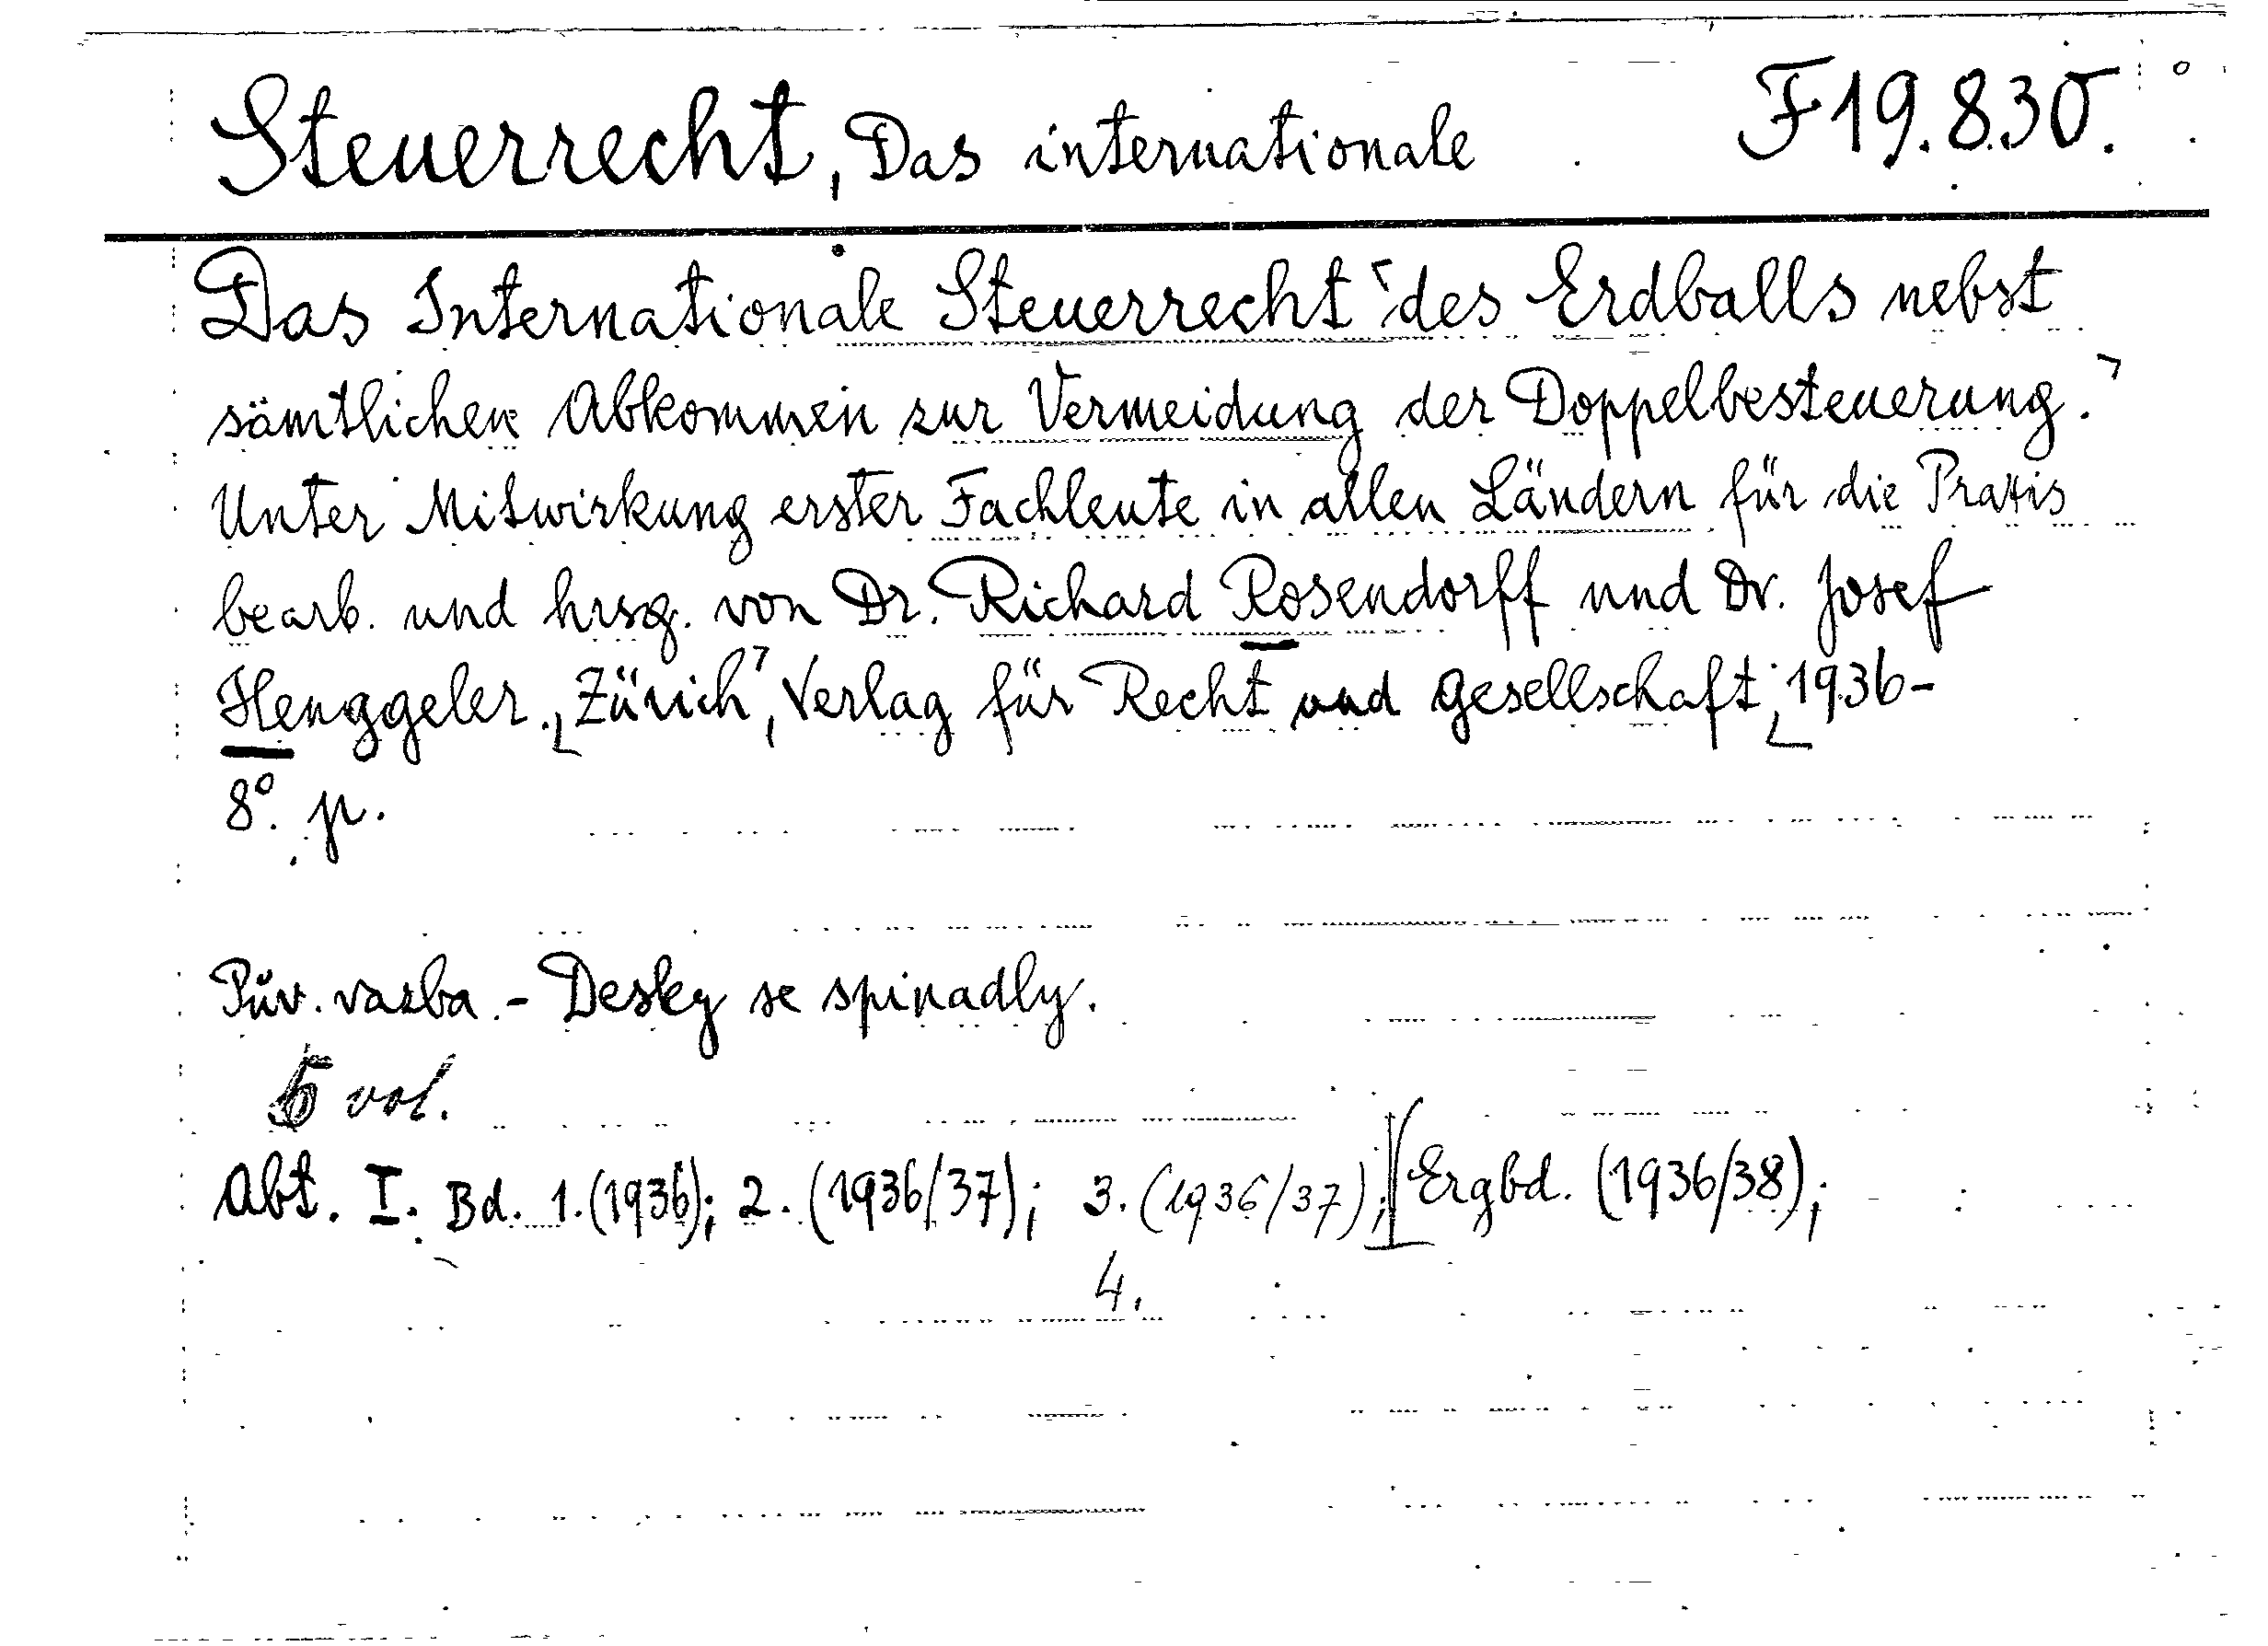 Steuerrecht, Das internationale F 19.830.
Das Internationale Steuerrecht des Erdballs nebst
sämtlichen Abkommen zur Vermeidung der Doppelbesteuerung.
Unter Mitwirkung erster Fachleute in allen Ländern für die Praxis
bearb. und hrsg. von Dr. Richard Rosendorff und Dr. Josef
Henggeler. Zürich, Verlag für Recht und Gesellschaft, 1936-
8°. p.
Pův. vazba. - Desky se spinadly.
5 vol.
Abt. I. Bd. 1. (1936); 2. (1936/37); 3. (1936/37); Ergbd. (1936/38);
4.